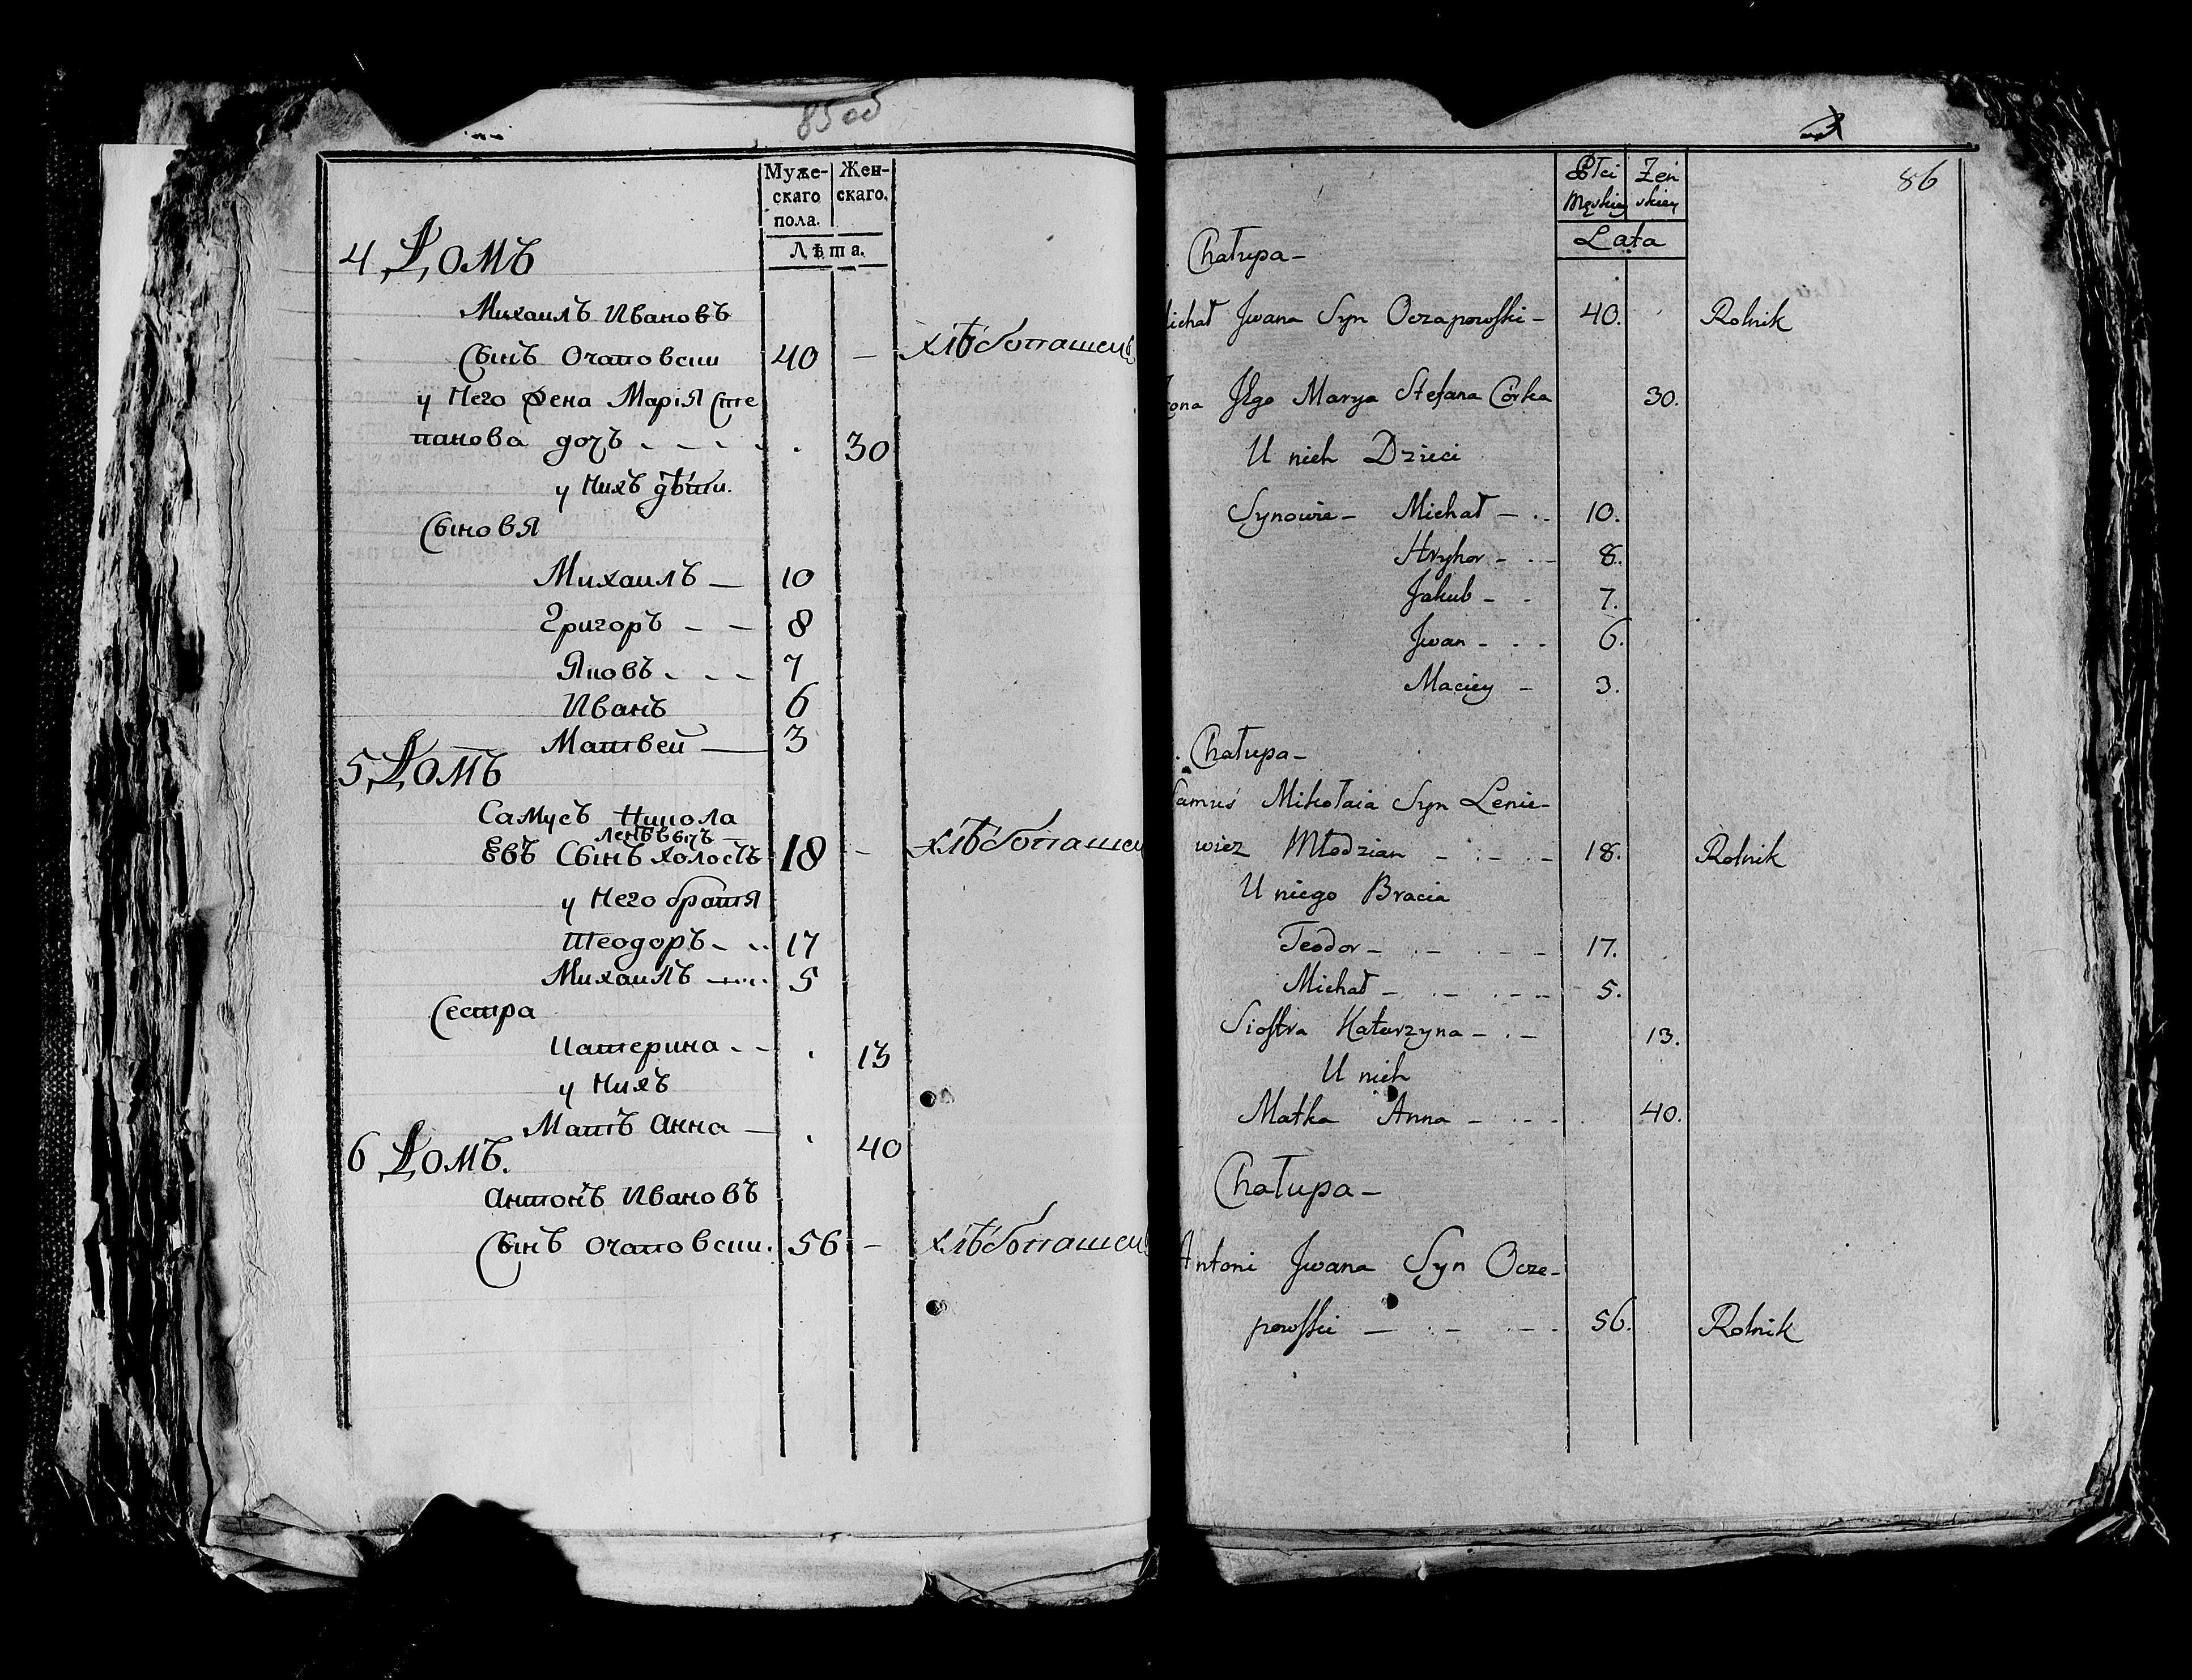 85об
Муже-
скаго
пола.
Жен-
скаго.
Лѣта.
4 Домъ
Михаилъ Ивановъ
Сынъ Очаповски 40 — хлѣбопашецъ
у Него Жена Марія Сте
панова дочъ - - - . 30
у Нихъ дѣти.
Сыновя
Михаилъ — 10
Григоръ - - 8
Яковъ - - - 7
Иванъ 6
Матвей — 3
5 Домъ
Самусъ Никола
Леневвичъ —
Евъ Сынъ холостъ 18 - хлѣбопашец
у Него братя
Теодоръ - - 17
Михаилъ — 5
Сестра
Катерина - - . 13
у Нихъ
Матъ Анна — . 40
6 Домъ.
Антонъ Ивановъ
Сынъ Очаповски. 56 - хлѣбопашец
86
Płci
Męskiey
Żeń
skiey
Lata
Chałupa -
ichał Jwana Syn Oczapowski - 40. Rolnik
ona Jego Marya Stefana Córka 30.
U nich Dzieci
Synowie - Michał - .. 10.
Hryhor - . - 8.
Jakub - - 7.
Jwan - . - 6.
Maciey - 3.
. Chałupa -
Samuś Mikołaia Syn Lenie-
wicz Młodzian - . - . - 18. Rolnik
U niego Bracia
Teodor - . - . - - 17.
Michał - . - . - - 5.
Siostra Katarzyna - . - 13.
U nich
Matka Anna - . - - 40.
Chałupa -
Antoni Jwana Syn Ocze-
powski — . - . - - 56. Rolnik